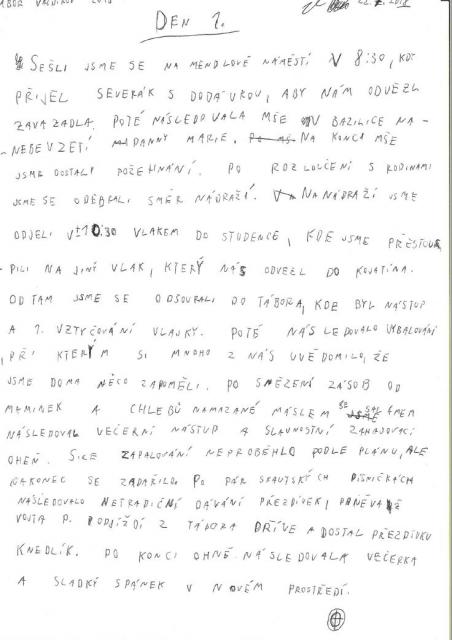 TÁBOR 2018
DEN 1.
SEŠLI JSME SE NA MENDLOVĚ NÁMĚSTÍ V 8:30, KDY
PŘIJEL SEVERÁK S DODÁVKOU, ABY NÁM ODVEZL
ZAVAZADLA. POTÉ NÁSLEDOVALA MŠE V BAZILICE NA-
-NEBEVZETÍ PANNY MARIE. NA KONCI MŠE
JSME DOSTALI POŽEHNÁNÍ. PO ROZLOUČENÍ S RODINAMI
JSME SE ODEBRALI SMĚR NÁDRAŽÍ. NA NÁDRAŽÍ JSME
ODJELI V ±10:30 VLAKEM DO STUDENCE, KDE JSME PŘESTOU-
-PILI NA JINÝ VLAK, KTERÝ NÁS ODVEZL DO KOJATÍNA.
ODTAM JSME SE ODSOURALI DO TÁBORA, KDE BYL NÁSTUP
A 1. VZTYČOVÁNÍ VLAJKY. POTÉ NÁSLEDOVALO VYBALOVÁNÍ
, PŘI KTERÝM SI MNOHO Z NÁS UVĚDOMILO, ŽE
JSME DOMA NĚCO ZAPOMĚLI. PO SNĚZENÍ ZÁSOB OD
MAMINEK A CHLEBŮ NAMAZANÉ MÁSLEM SE
NÁSLEDOVAL VEČERNÍ NÁSTUP A SLAVNOSTNÍ ZAHAJOVACÍ
OHEŇ. SICE ZAPALOVÁNÍ NEPROBĚHLO PODLE PLÁNU, ALE
NAKONEC SE ZADAŘILO. PO PÁR SKAUTSKÝCH PÍSNIČKÁCH
NÁSLEDOVALO NETRADIČNÍ DÁVÁNÍ PŘEZDÍVEK, PONĚVADŽ
VOJTA P. ODJÍŽDÍ Z TÁBORA DŘÍVE A DOSTAL PŘEZDÍVKU
KNEDLÍK. PO KONCI OHNĚ NÁSLEDOVALA VEČERKA
A SLADKÝ SPÁNEK V NOVÉM PROSTŘEDÍ.